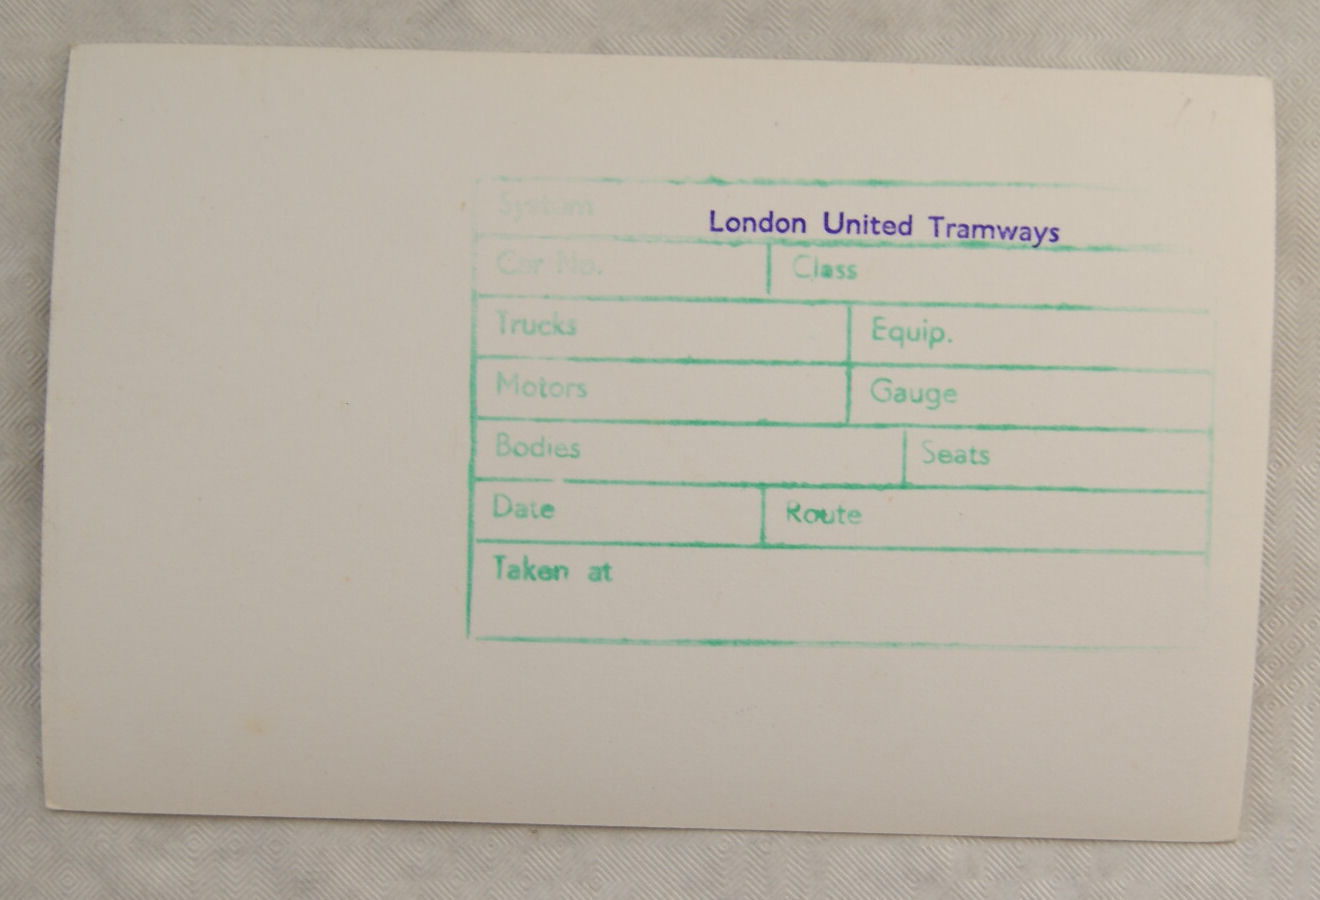 System London United Tramways
Car No. Class
Trucks Equip.
Motors Gauge
Bodies Seats
Date Route
Taken at